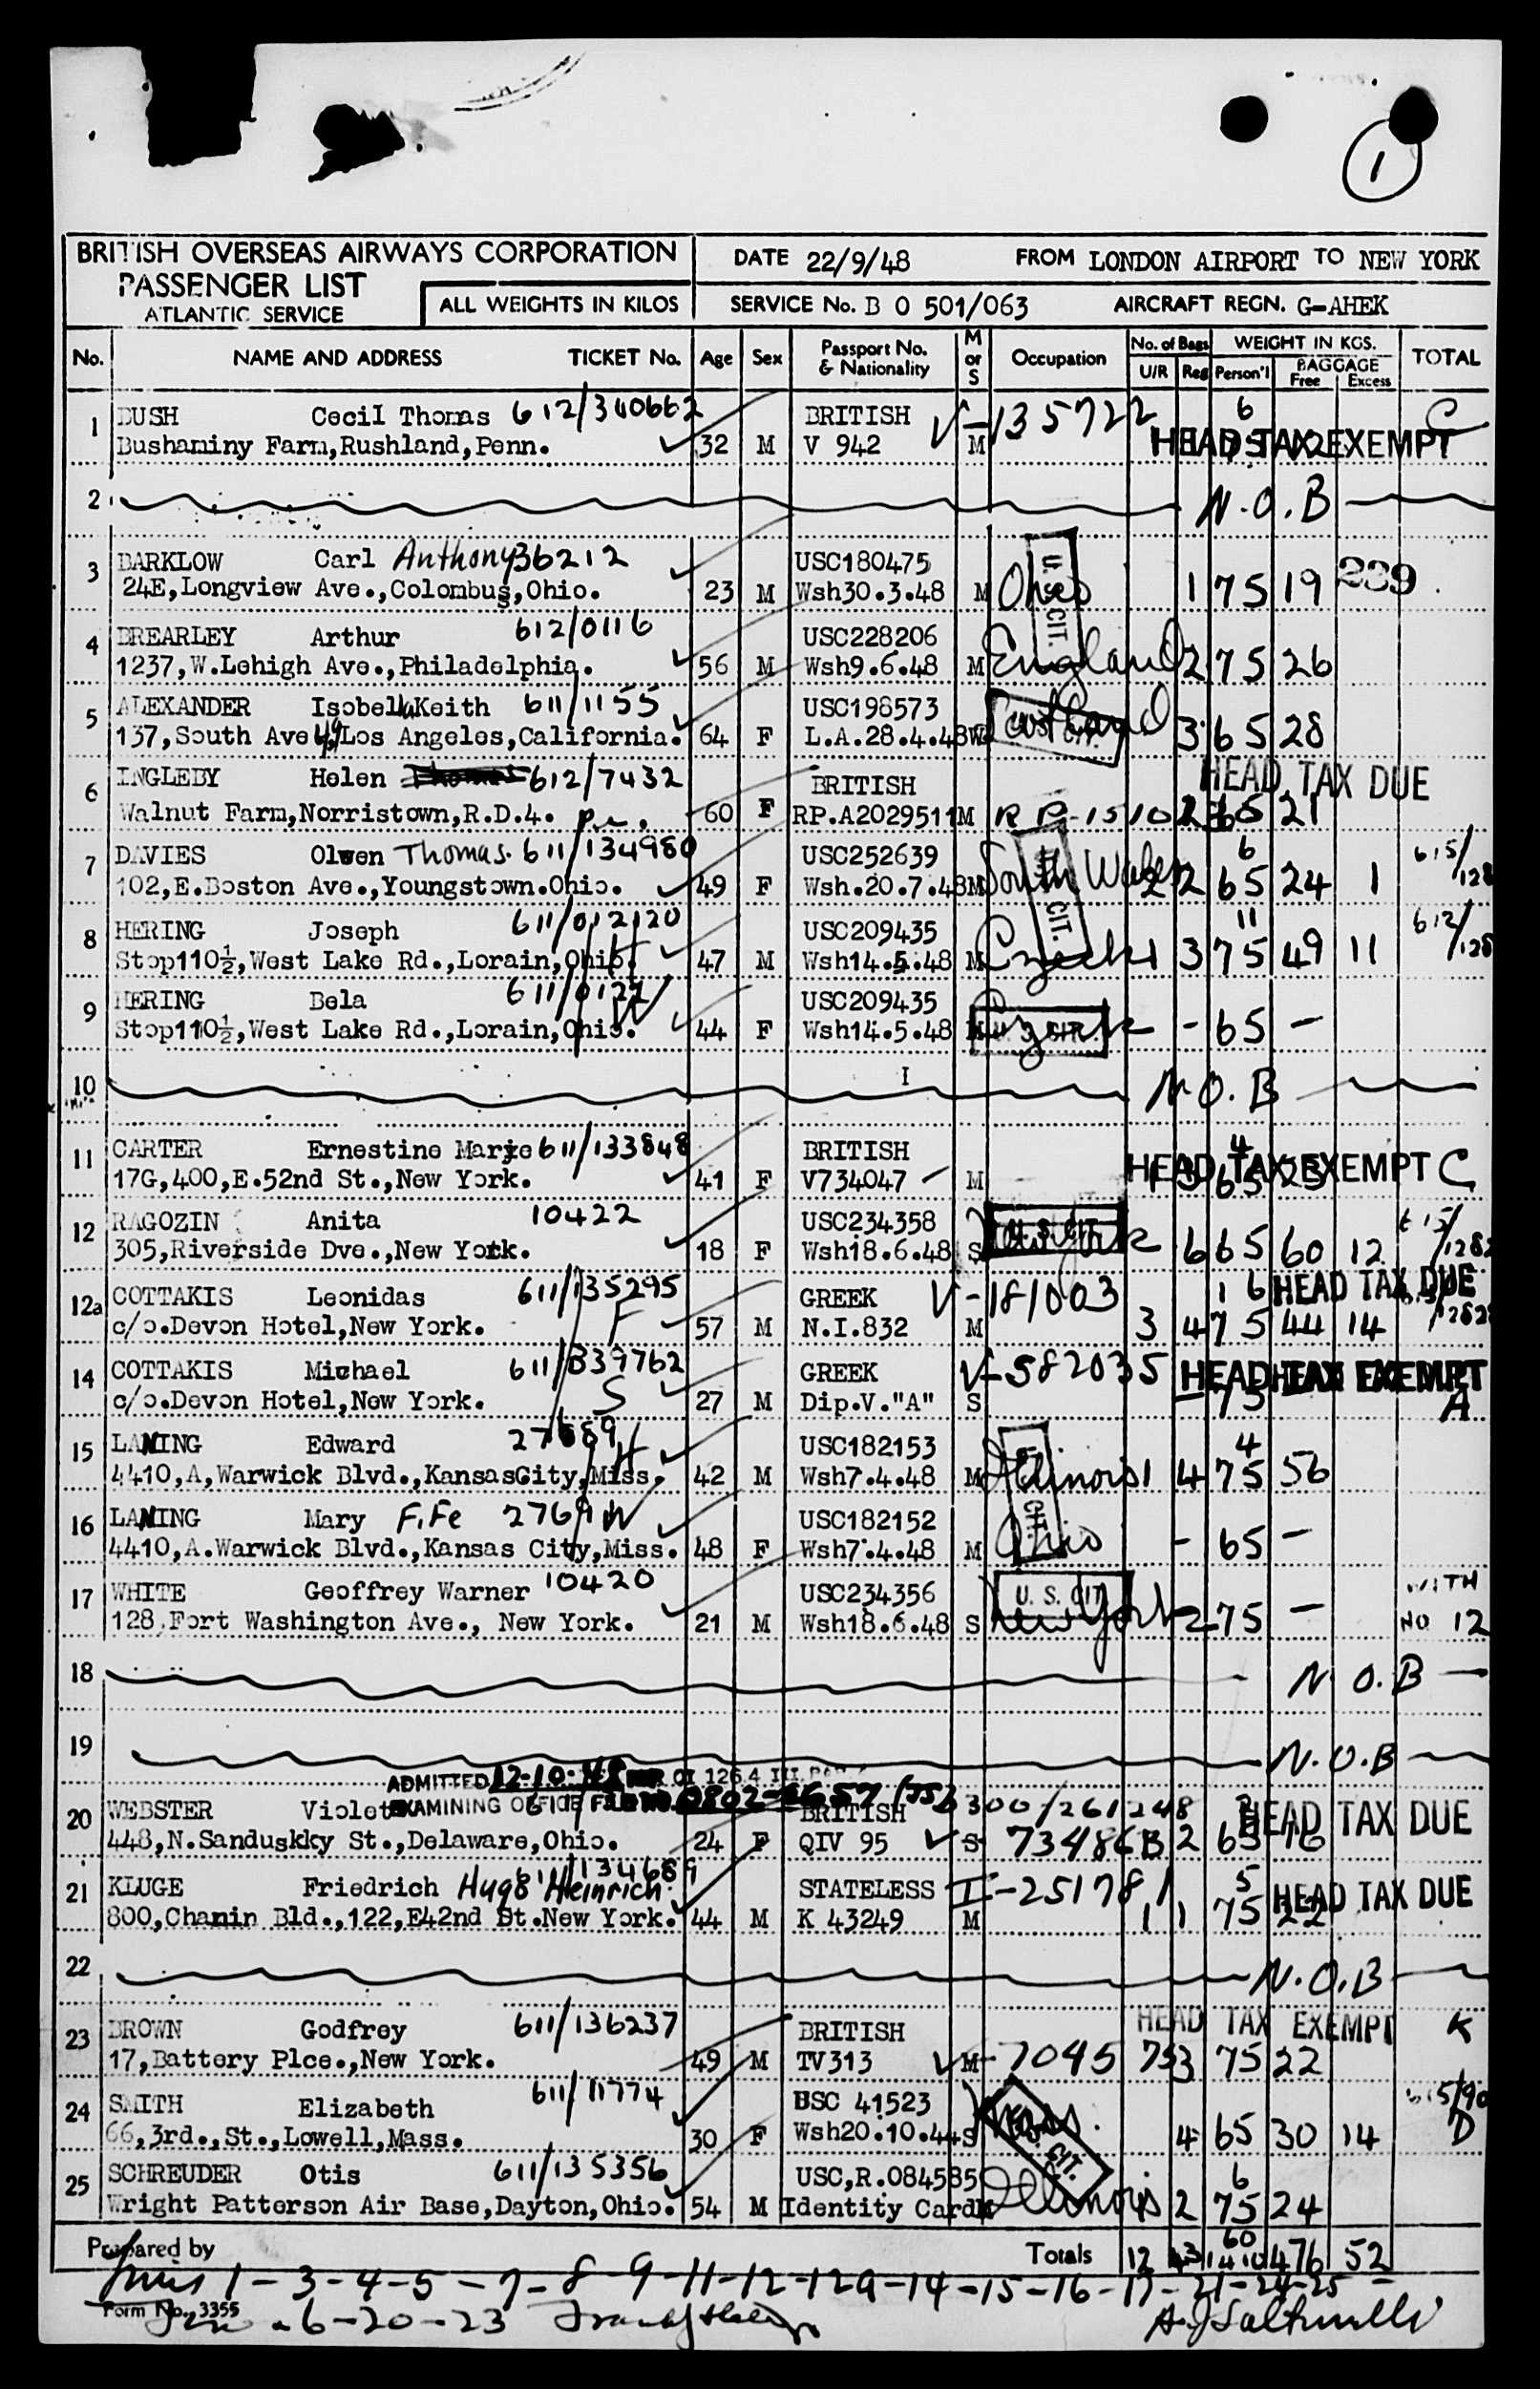 1
BRITISH OVERSEAS AIRWAYS CORPORATION
PASSENGER LIST
ATLANTIC SERVICE
ALL WEIGHTS IN KILOS
DATE 22/9/48 FROM LONDON AIRPORT TO NEW YORK
SERVICE No. B O 501/063 AIRCRAFT REGN. G-AHEK
No. NAME AND ADDRESS TICKET No. Age Sex Passport No. & Nationality M or S Occupation No. of Bags U/R Reg WEIGHT IN KGS. Person'l BAGGAGE Free Excess TOTAL
1 BUSH Cecil Thomas 612/340662 BRITISH V-135722 6 C
Bushaminy Farm,Rushland,Penn. 32 M V 942 M HEAD TAX EXEMPT
2 N.O.B
3 BARKLOW Carl Anthony 36212 USC180475
24E,Longview Ave.,Colombus,Ohio. 23 M Wsh30.3.48 M Ohio U.S. CIT. 1 75 19 239
4 BREARLEY Arthur 612/0116 USC228206
1237,W.Lehigh Ave.,Philadelphia. 56 M Wsh9.6.48 M England 2 75 26
5 ALEXANDER Isobella Keith 611/1155 USC198573
137,South Ave 49,Los Angeles,California. 64 F L.A.28.4.48 W Scotland 3 65 28
6 INGLEBY Helen 612/7432 BRITISH HEAD TAX DUE
Walnut Farm,Norristown,R.D.4. Pa. 60 F RP.A2029511 M RP-1510 65 21
7 DAVIES Olwen Thomas. 611/134980 USC252639 6 615/
102,E.Boston Ave.,Youngstown.Ohio. 49 F Wsh.20.7.48 M South Wales CIT. 2 2 65 24 1 128
8 HERING Joseph 611/012120 USC209435 11 612/
Stop110½,West Lake Rd.,Lorain,Ohio. H 47 M Wsh14.5.48 M Czech 1 3 75 49 11 128
9 HERING Bela 611/0122 USC209435
Stop110½,West Lake Rd.,Lorain,Ohio. W 44 F Wsh14.5.48 M U.S. CIT. - 65 -
10 N.O.B
11 CARTER Ernestine Marie 611/133848 BRITISH 4
17G,400,E.52nd St.,New York. 41 F V734047 M HEAD TAX EXEMPT C 65
12 RAGOZIN Anita 10422 USC234358 U.S. CIT. 615/
305,Riverside Dve.,New York. 18 F Wsh18.6.48 S 6 65 60 12 1282
12a COTTAKIS Leonidas 611/135295 GREEK V-181003 16 HEAD TAX DUE
c/o.Devon Hotel,New York. F 57 M N.I.832 M 3 4 75 44 14 1282
14 COTTAKIS Michael 611/339762 GREEK V-582035 HEAD TAX EXEMPT
c/o.Devon Hotel,New York. S 27 M Dip.V."A" S - 75 A
15 LANING Edward 27689 USC182153 4
4410,A,Warwick Blvd.,KansasCity,Miss. H 42 M Wsh7.4.48 M Illinois 1 4 75 56
16 LANING Mary FiFe 2769 W USC182152
4410,A.Warwick Blvd.,Kansas City,Miss. 48 F Wsh7.4.48 M Ohio CIT. - 65 -
17 WHITE Geoffrey Warner 10420 USC234356 U. S. CIT. WITH
128,Fort Washington Ave., New York. 21 M Wsh18.6.48 S New York 2 75 - NO 12
18 N.O.B
19 N.O.B
ADMITTED 12-10-48 OI 126.4 III.
EXAMINING OFFICE FILE NO. 0802-
20 WEBSTER Violet BRITISH 300/261248 HEAD TAX DUE
448,N.Sanduskky St.,Delaware,Ohio. 24 F QIV 95 S 73486 B 2 65 16
21 KLUGE Friedrich Hugo Heinrich 611/134689 STATELESS I-251781 5 HEAD TAX DUE
800,Chanin Bld.,122,E42nd St.New York. 44 M K 43249 M 1 1 75 22
22 N.O.B
23 BROWN Godfrey 611/136237 BRITISH HEAD TAX EXEMPT K
17,Battery Plce.,New York. 49 M TV313 M 7045 753 75 22
24 SMITH Elizabeth 611/11774 USC 41523 615/90
66,3rd.,St.,Lowell,Mass. 30 F Wsh20.10.44 S Mass. U.S. CIT. 4 65 30 14 D
25 SCHREUDER Otis 611/135356 USC,R.084585 6
Wright Patterson Air Base,Dayton,Ohio. 54 M Identity Card M Illinois 2 75 24
Prepared by Totals 12 43 60 1410 476 52
1-3-4-5-7-8-9-11-12-12a-14-15-16-17-21-24-25
Form No. 3355 6-20-23